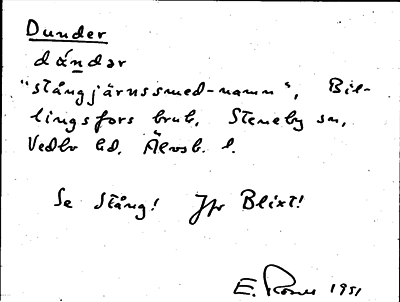 Dunder
dándər
"stångjärnssmed-namn", Bil-
lingsfors bruk, Steneby sn,
Vedbo hd, Älvsb. l.
Se Stång! Jfr Blixt!
E. 1951